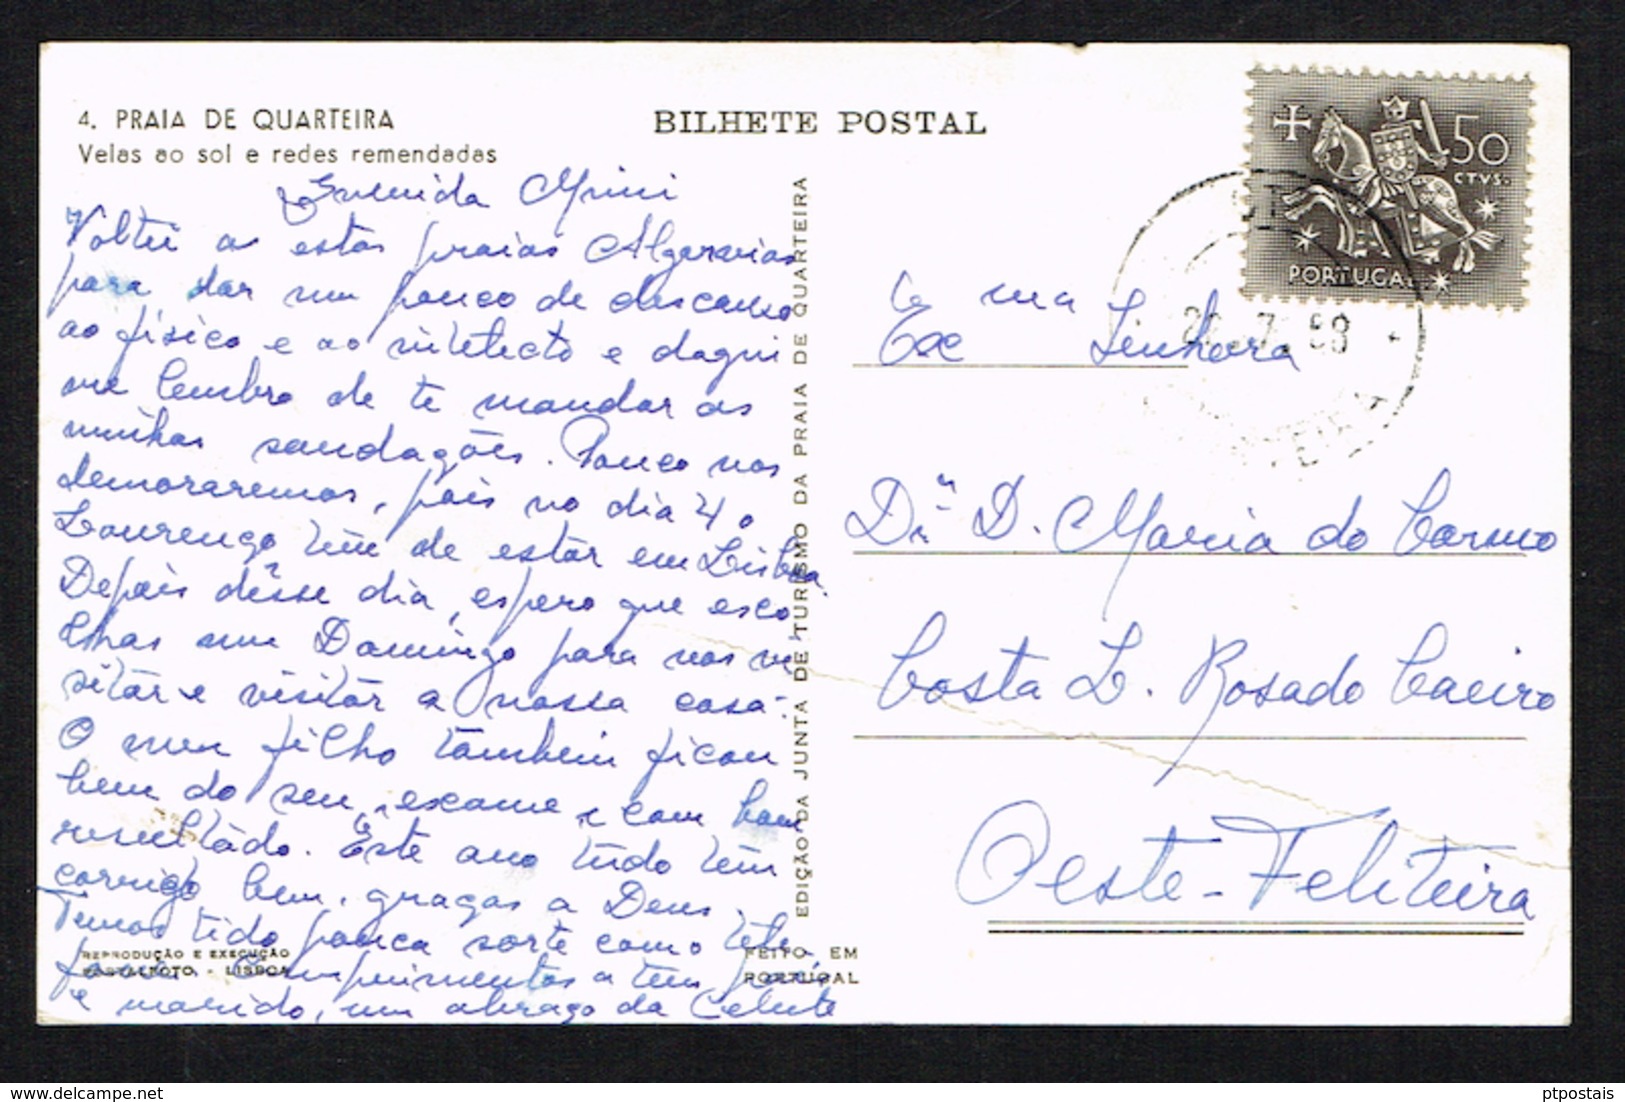 4. PRAIA DE QUARTEIRA
Velas ao sol e redes remendadas
BILHETE POSTAL
50
CTVS.
PORTUGAL
Mimi
Voltei a estas praias Algarvias
para dar um pouco de descanso
ao fisico e ao intelecto e daqui
me lembro de te mandar as
minhas saudações. Pouco nos
demoraremos, pois no dia 4 o
Lourenço têm de estar em Lisboa
Depois dêsse dia, espero que esco
lhas um Domingo para nos vi
sitar e visitar a nossa casa.
O meu filho também ficou
bem do seu exame e com bom
resultado. Êste ano tudo têm
corrido bem, graças a Deus.
Temos tido pouca sorte com o
Cumprimentos a teus
e marido, um abraço da Celeste
EDIÇÃO DA JUNTA DE TURISMO DA PRAIA DE QUARTEIRA
REPRODUÇÃO E EXECUÇÃO
- LISBOA
FEITO EM
PORTUGAL
Ex ma Senhora
D. Maria do Carmo
Costa L. Rosado Caeiro
Oeste - Feliteira
ptpostais